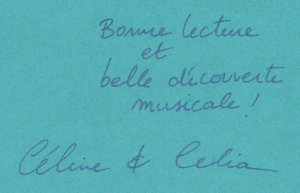 Bonne lecture
et
belle découverte
musicale !
Céline & Celia